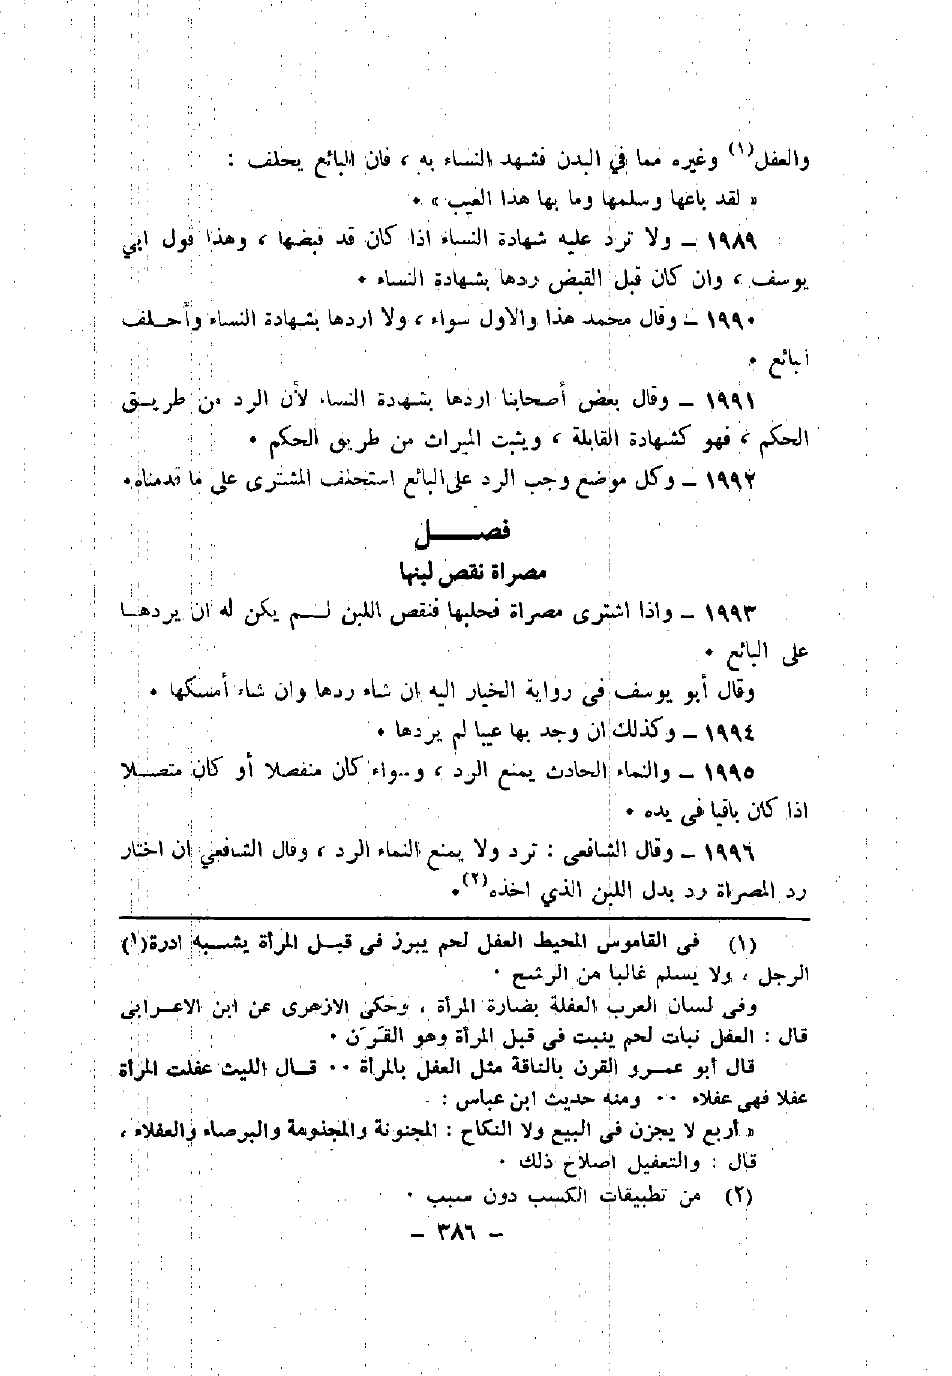 والعفل(١) وغيره مما في البدن فشهد النساء به ، فان البائع يحلف :
« لقد باعها وسلمها وما بها هذا العيب » ٠
١٩٨٩ ــ ولا ترد عليه شهادة النساء اذا كان قد قبضها ، وهذا قول ابي
يوسف ، وان كان قبل القبض ردها بشهادة النساء ٠
١٩٩٠ ــ وقال محمد هذا والاول سواء ، ولا اردها بشهادة النساء وأحلف
البائع ٠
١٩٩١ ــ وقال بعض أصحابنا اردها بشهادة النساء لأن الرد من طريق
الحكم ، فهو كشهادة القابلة ، ويثبت الميراث من طريق الحكم ٠
١٩٩٢ ــ وكل موضع وجب الرد على البائع استحلف المشترى على ما قدمناه٠
فصــل
مصراة نقص لبنها
١٩٩٣ ــ واذا اشترى مصراة فحلبها فنقص اللبن لم يكن له ان يردها
على البائع ٠
وقال أبو يوسف فى رواية الخيار اليه ان شاء ردها وان شاء أمسكها ٠
١٩٩٤ ــ وكذلك ان وجد بها عيبا لم يردها ٠
١٩٩٥ ــ والنماء الحادث يمنع الرد ، وسواء كان منفصلا أو كان متصلا
اذا كان باقيا فى يده ٠
١٩٩٦ ــ وقال الشافعى : ترد ولا يمنع النماء الرد ، وقال الشافعي ان اختار
رد المصراة رد بدل اللبن الذي اخذه(٢)٠
(١) فى القاموس المحيط العفل لحم يبرز فى قبل المرأة يشبه ادرة(١)
الرجل ، ولا يسلم غالبا من الرشح ٠
وفى لسان العرب العفلة بضارة المرأة ، وحكى الازهرى عن ابن الاعرابى
قال : العفل نبات لحم ينبت فى قبل المرأة وهو القَرَن ٠
قال أبو عمرو القرن بالناقة مثل العفل بالمرأة ٠٠ قال الليث عفلت المرأة
عفلا فهى عفلاء ٠٠ ومنه حديث ابن عباس :
« أربع لا يجزن فى البيع ولا النكاح : المجنونة والمجذومة والبرصاء والعفلاء ،
قال : والتعفيل اصلاح ذلك ٠
(٢) من تطبيقات الكسب دون سبب ٠
ــ ٣٨٦ ــ